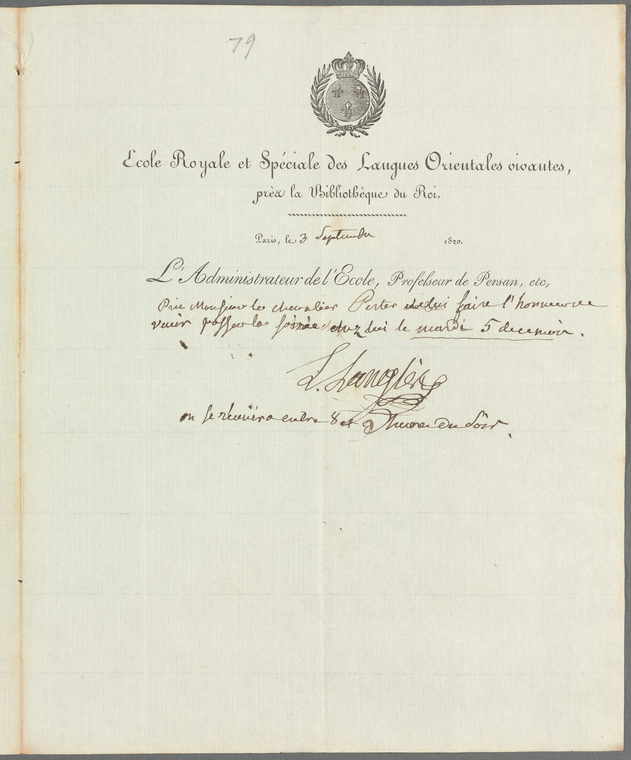 79
Ecole Royale et Spéciale des Langues Orientales vivantes,
près la Bibliothèque du Roi.
Paris, le 3 Septembre 1820.
L'Administrateur de l'École, Professeur de Persan, etc,
Prie Monsieur le chevalier Porter de lui faire l'honneur de
venir passer la soirée chez lui le mardi 5 decembre.
L. Langlès
on se réunira entre 8 et 9 heures du soir.